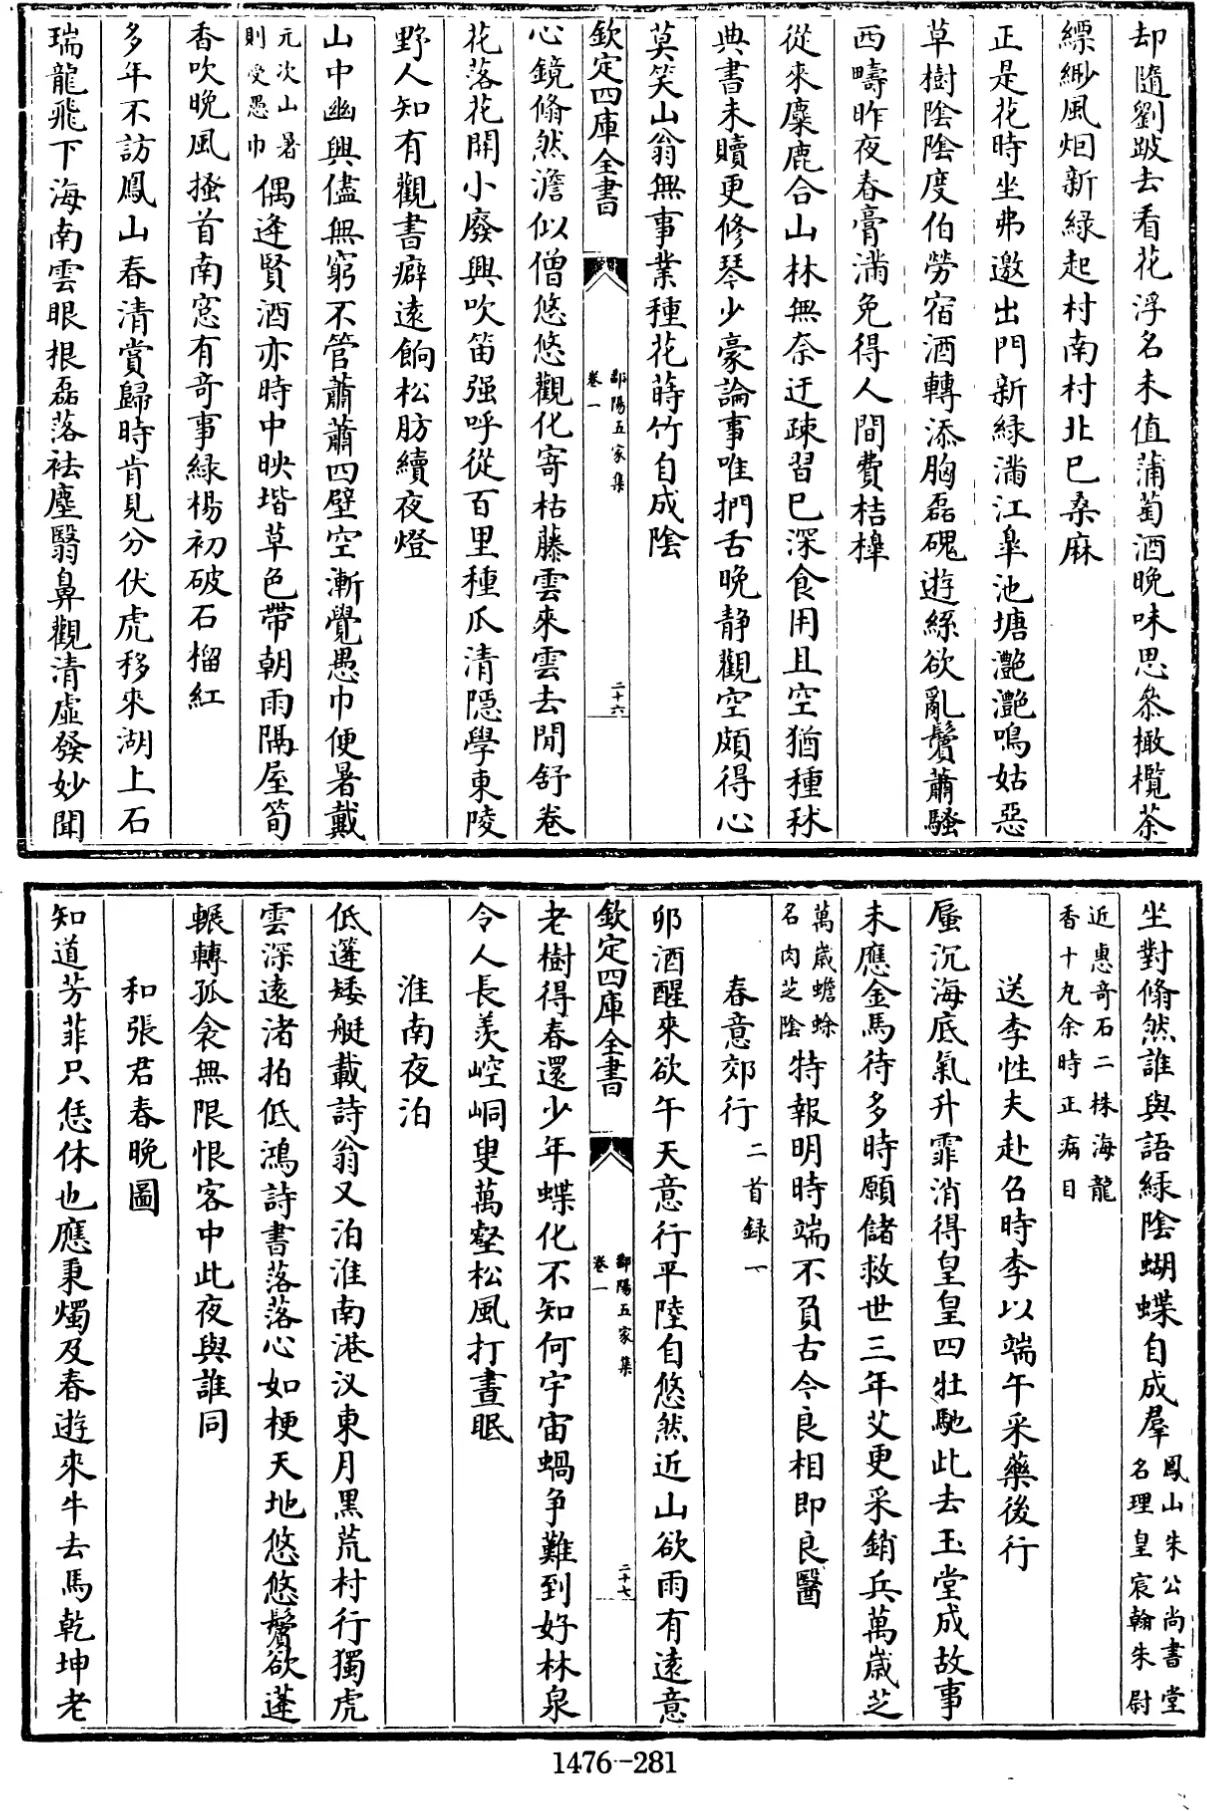 却隨劉跛去看花浮名未值蒲萄酒晚味思參橄欖茶
縹緲風烟新緑起村南村北已桑麻
正是花時坐弗邀出門新緑滿江臯池塘灧灧鳴姑惡
草樹陰陰度伯勞宿酒轉添胸磊磈遊絲欲亂鬢蕭騷
西疇昨夜春膏滿免得人間費桔橰
從來麋鹿合山林無奈迂疎習已深食用且空猶種秫
典書未贖更修琴少豪論事唯捫舌晚静觀空頗得心
莫笑山翁無事業種花蒔竹自成陰
欽定四庫全書
鄱陽五家集
卷一
二十六
心鏡翛然澹似僧悠悠觀化寄枯藤雲來雲去閒舒卷
花落花開小廢興吹笛强呼從百里種瓜清隱學東陵
野人知有觀書癖遠餉松肪續夜燈
山中幽興儘無窮不管蕭蕭四壁空漸覺愚巾便暑戴
元次山暑
則受愚巾
偶逢賢酒亦時中映堦草色帶朝雨隔屋筍
香吹晚風搔首南窓有奇事緑楊初破石榴紅
多年不訪鳳山春清賞歸時肯見分伏虎移來湖上石
瑞龍飛下海南雲眼根磊落袪塵翳鼻觀清虛發妙聞
坐對翛然誰與語緑陰蝴蝶自成羣
鳳山朱公尚書堂
名理皇宸翰朱尉
近惠奇石二株海龍
香十九余時正病目
送李性夫赴召時李以端午采藥後行
蜃沉海底氣升霏消得皇皇四牡馳此去玉堂成故事
未應金馬待多時願儲救世三年艾更采銷兵萬歳芝
萬歳蟾蜍
名肉芝陰
特報明時端不負古今良相即良醫
春意郊行
二首録一
卯酒醒來欲午天意行平陸自悠然近山欲雨有遠意
欽定四庫全書
鄱陽五家集
卷一
二十七
老樹得春還少年蝶化不知何宇宙蝸争難到好林泉
令人長羨崆峒叟萬壑松風打晝眠
淮南夜泊
低篷矮艇載詩翁又泊淮南港汊東月黒荒村行獨虎
雲深遠渚拍低鴻詩書落落心如梗天地悠悠鬢欲蓬
輾轉孤衾無限恨客中此夜與誰同
和張君春晚圖
知道芳菲只恁休也應秉燭及春遊來牛去馬乾坤老
1476-281